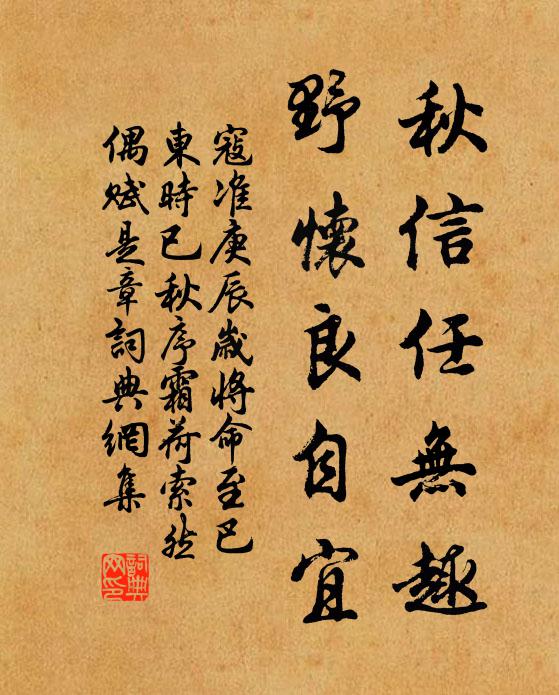 秋信任無趣
野懷良自宜
寇准庚辰歲將命至巴
東時已秋序霜荷索然
偶賦是章詞典網集
詞典网印